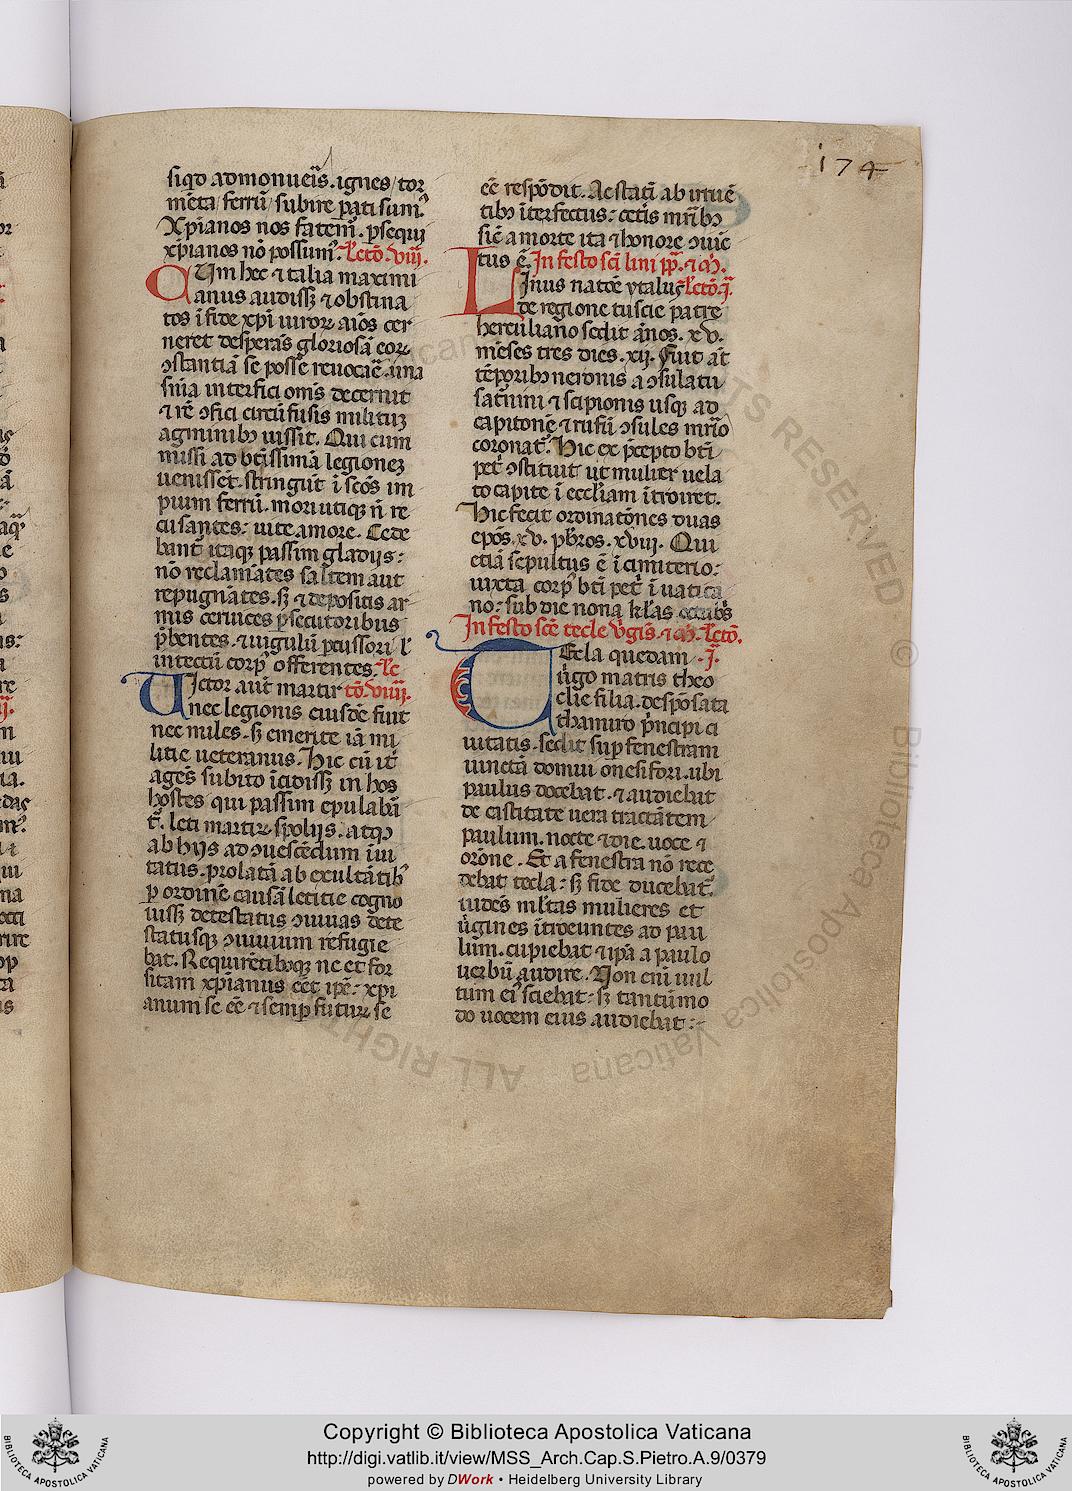 174
siqd admonueris. ignes/ tor
mēta/ ferrū/ subire parati sumꝰ.
Xpianos nos fatem̄. psequi
xpianos nō possumꝰ. Lectō. viii.
Cum hec ⁊ talia maximi
anus audissꝫ ⁊ obstina
tos ī fide xpi uiroꝝ aīos cer
neret desperās gloriosā eoꝝ
ɔstantiā se posse reuocare. una
snīa interfici om̄s decernit
⁊ rē ɔfici circūfusis militū
agminibꝫ iussit. Qui cum
missi ad btissimā legionem
uenissēt. stringūt ī scōs im
pium ferrū. mori utiqꝫ n̄ re
cusantes: uite amore. Cede
bant᷑ itaqꝫ passim gladijs:
nō reclamātes saltem aut
repugnātes. sꝫ ⁊ depositis ar
mis ceruices psecutoribus
p̄bentes. ⁊ iugulū pcussori ł
intectū corpꝰ offerentes. Le
Uictor aūt martir ctō. viiii.
nec legionis eiusdē fuit
nec miles. sꝫ emerite iā mi
litie ueteranus. Hic cū it᷑
agēs subito īcidissꝫ in hos
hostes qui passim epulabā
t᷑. leti martiꝝ spolijs. atqꝫ
ab hijs ad ɔuescēdum īui
tatus. prolatā ab exultātibꝫ
p ordinē causā letitie cogno
uissꝫ detestatus ɔuiuas dete
statusqꝫ ɔuiuium refugie
bat. Requirētibꝫqꝫ ne et for
sitam xpianus eēt ipē: xpi
anum se eē ⁊ semp futuꝝ se
eē respōdit. Ac statī ab irrue
tibꝫ īterfectus: cetīs mr̄ibꝫ
sic̄ a morte ita ⁊ honore ɔiūc
tus ē. In festo scī lini pp̄. ⁊ m̄.
Linus natōe ytalus Lectō. i.
de regione tuscie patre
herculiano sedit ānos. xv.
mēses tres dies. xij. Fuit aūt
tēporibꝫ neronis a ɔsulatu
sat̄nini ⁊ scipionis usqꝫ ad
capitonē ⁊ rufū ɔsules mr̄io
coronat᷑. Hic ex p̄cepto bt̄i
pet̄ ɔstituit ut mulier uela
to capite ī eccl̄iam ītroiret.
Hic fecit ordinatōnes duas
ep̄os. xv. pb̄ros. xviii. Qui
etiā sepultus ē ī cimiterio:
iuxta corpꝰ bt̄i pet̄ ī uatica
no: sub die nona kl̄as octub̄s
In festo sc̄e tecle v̄gis. ⁊ m̄. Lectō.
Tecla quedam .i.
ūgo matris theo
clie filia. despōsata
thamiro p̄ncipi ci
uitatis. sedit sup fenestram
iunctā domui onesifori. ubi
paulus docebat. ⁊ audiebat
de castitate uera tractātem
paulum. nocte ⁊ die. uoce ⁊
orōne. Et a fenestra nō rece
debat tecla: sꝫ fide ducebat᷑
uidēs ml̄tas mulieres et
ūgines ītroeuntes ad pau
lum. cupiebat ⁊ ipā a paulo
uerbū audire. Non eni uul
tum eiꝰ sciebat: sꝫ tantūmo
do uocem eius audiebat:
© Biblioteca Apostolica Vaticana
ALL RIGHTS RESERVED
Copyright © Biblioteca Apostolica Vaticana
http://digi.vatlib.it/view/MSS_Arch.Cap.S.Pietro.A.9/0379
powered by DWork • Heidelberg University Library
BIBLIOTECA APOSTOLICA VATICANA
BIBLIOTECA APOSTOLICA VATICANA